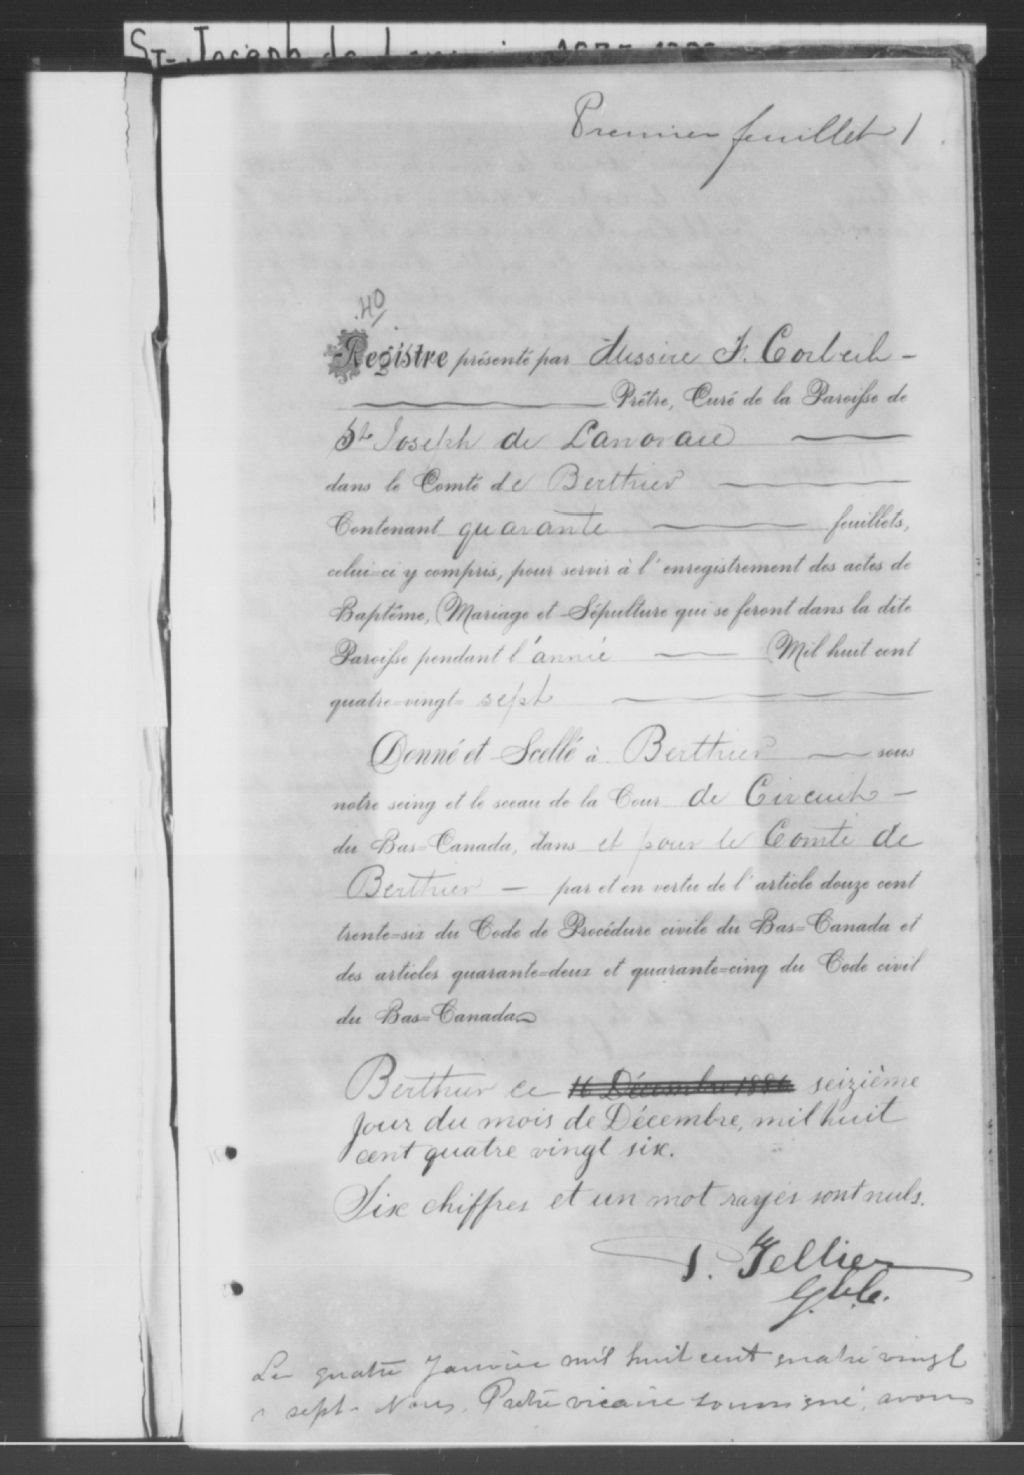 St-Joseph de
Premier feuillet 1
40
Registre présenté par Messire F. Corbeil
Prêtre, Curé de la Paroisse de
St Joseph de Lanoraie
dans le Comté de Berthier
Contenant quarante feuillets,
celui=ci y compris, pour servir à l'enregistrement des actes de
Baptême, Mariage et Sépulture qui se feront dans la dite
Paroisse pendant l'année Mil huit cent
quatre=vingt= sept
Donné et Scellé à Berthier sous
notre seing et le sceau de la Cour de Circuit
du Bas=Canada, dans et pour le Comté de
Berthier par et en vertu de l'article douze cent
trente=six du Code de Procédure civile du Bas=Canada et
des articles quarante=deux et quarante=cinq du Code civil
du Bas=Canada
Berthier ce 16 Décembre 1886 seizième
jour du mois de Décembre, mil huit
cent quatre vingt six.
Six chiffres et un mot rayés sont nuls.
Tellier
Le quatre Janvier mil huit cent quatre vingt
sept. Nous, Prêtre vicaire soussigné, avons